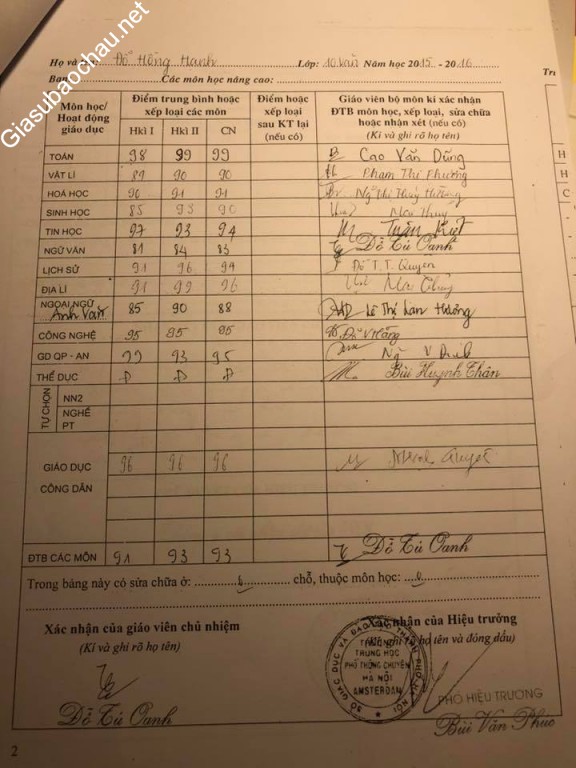 Giasubaochau.net
Họ và tên: Đỗ Hồng Hạnh Lớp: 10 Văn Năm học 2015 - 2016
Ban Các môn học nâng cao:
Môn học/ Hoạt động giáo dục
Điểm trung bình hoặc xếp loại các môn
Hkì I Hkì II CN
Điểm hoặc xếp loại sau KT lại (nếu có)
Giáo viên bộ môn kí xác nhận ĐTB môn học, xếp loại, sửa chữa hoặc nhận xét (nếu có)
(Kí và ghi rõ họ tên)
TOÁN 98 99 99 Cao Văn Dũng
VẬT LÍ 89 90 90 Phạm Thị Phương
HOÁ HỌC 90 91 91 Thuý Hường
SINH HỌC 85 93 90
TIN HỌC 97 93 94 Tuấn Kiệt
NGỮ VĂN 81 84 83 Đỗ Tú Oanh
LỊCH SỬ 91 96 Đỗ T.T. Quyên
ĐỊA LÍ 91 99 96
NGOẠI NGỮ Anh Văn 85 90 88 Lê Thị Lan Hương
CÔNG NGHỆ 95 95 95
GD QP - AN 93 95
THỂ DỤC Đ Đ Đ Bùi Huỳnh Thân
TỰ CHỌN
NN2
NGHỀ PT
GIÁO DỤC CÔNG DÂN 96 96 96
ĐTB CÁC MÔN 91 93 93 Đỗ Tú Oanh
Trong bảng này có sửa chữa ở: chỗ, thuộc môn học:
Xác nhận của giáo viên chủ nhiệm
(Kí và ghi rõ họ tên)
Đỗ Tú Oanh
Xác nhận của Hiệu trưởng
ghi rõ họ tên và đóng dấu)
TRUNG HỌC
PHỔ THÔNG CHUYÊN
HÀ NỘI
AMSTERDAM
PHÓ HIỆU TRƯỞNG
Bùi Văn Phúc
2